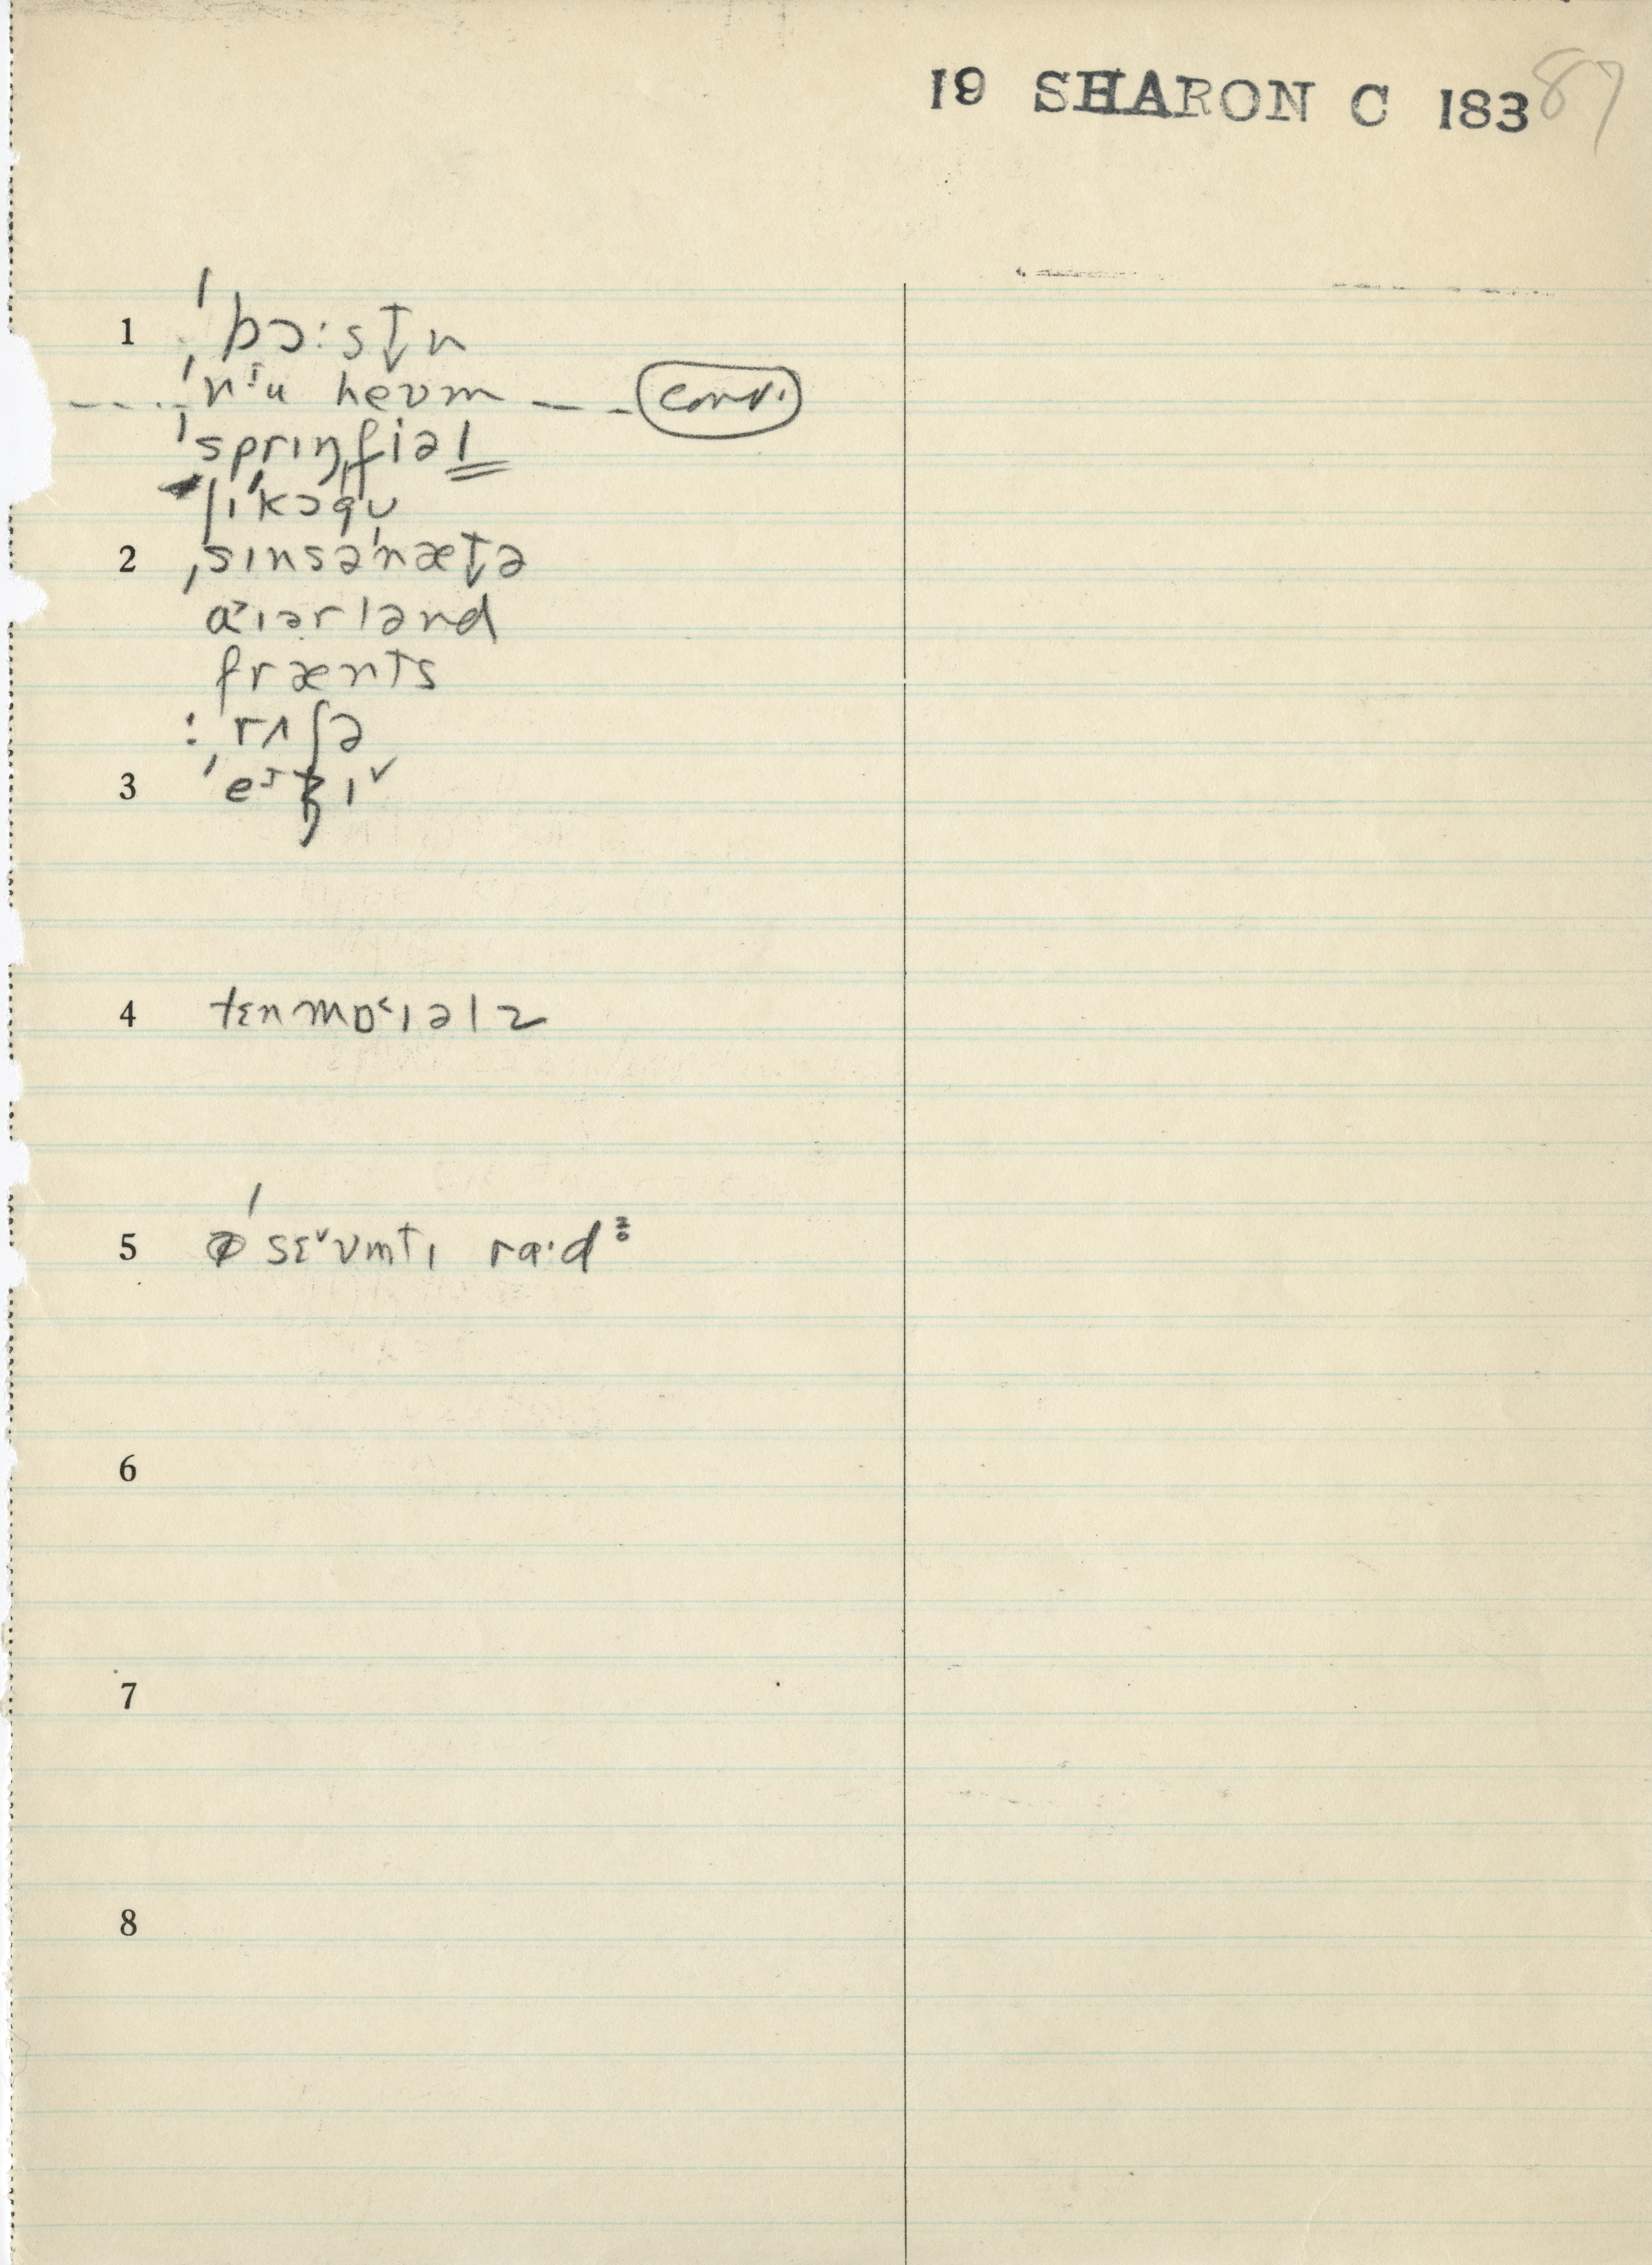 19 SHARON C 183 87
1 ˈbɔ:st̬n
ˈnᴵu heʊm — — conv.
ˈsprɪŋˌfiəl
ʃɪˈkɔgʊ
2 ˌsɪnsəˈnæt̬ə
a˃ɪərlənd
frænts
: ˈrʌʃə
3 ˈeᴵʒɪ˅
4 tɛnmɒ˂ɪəlz
5 ˈsɛ˅vmtɪ ra·dᶻ̥
6
7
8